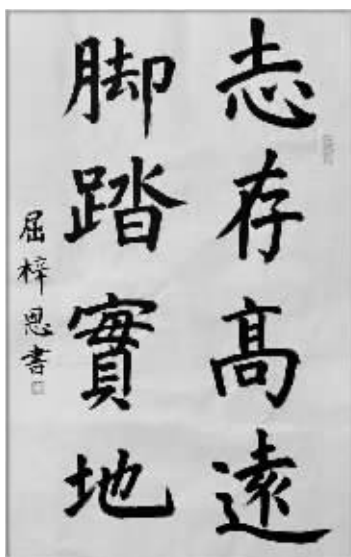 志存高遠
脚踏實地
屈梓恩書